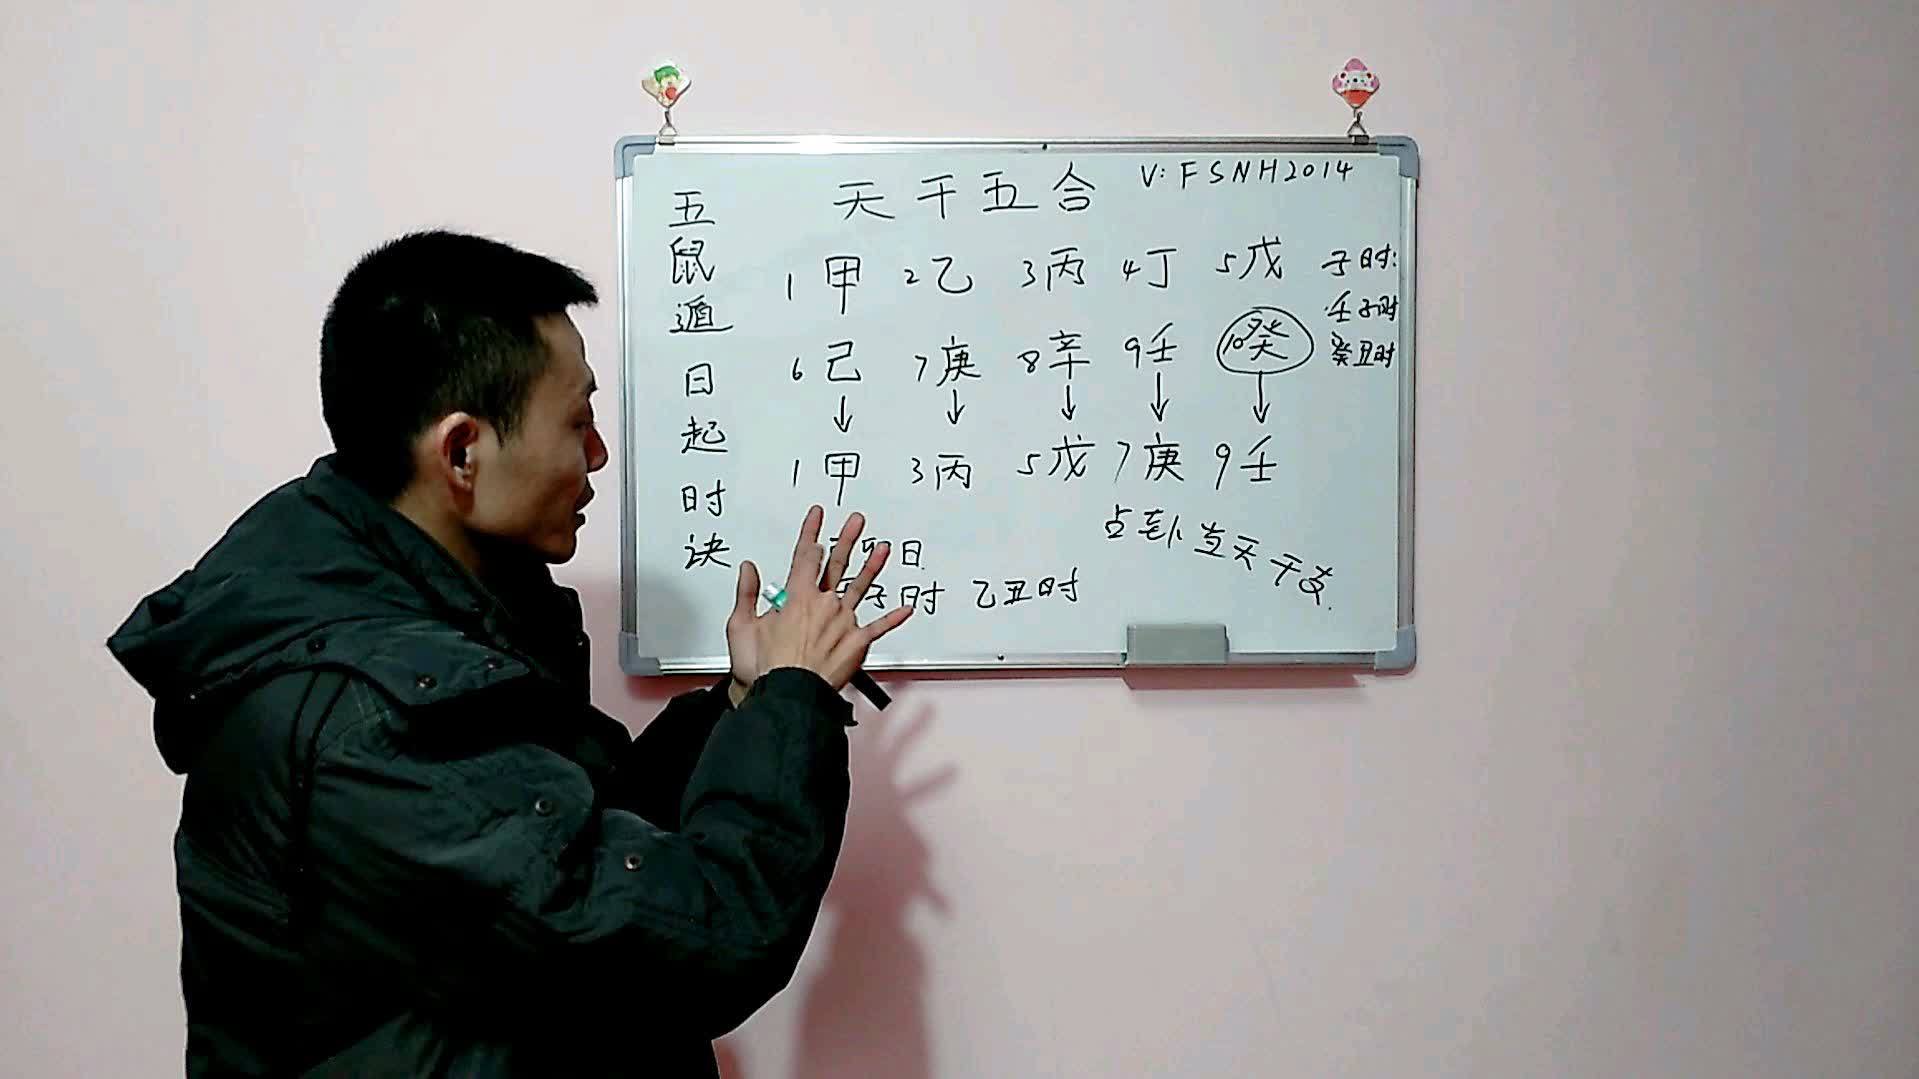 五鼠遁日起时诀
天干五合
V: FSNH2014
1甲 2乙 3丙 4丁 5戊
6己 7庚 8辛 9壬 10癸
↓ ↓ ↓ ↓ ↓
1甲 3丙 5戊 7庚 9壬
子时:
壬子时
癸丑时
卯日
子时 乙丑时
占卦当天干支.